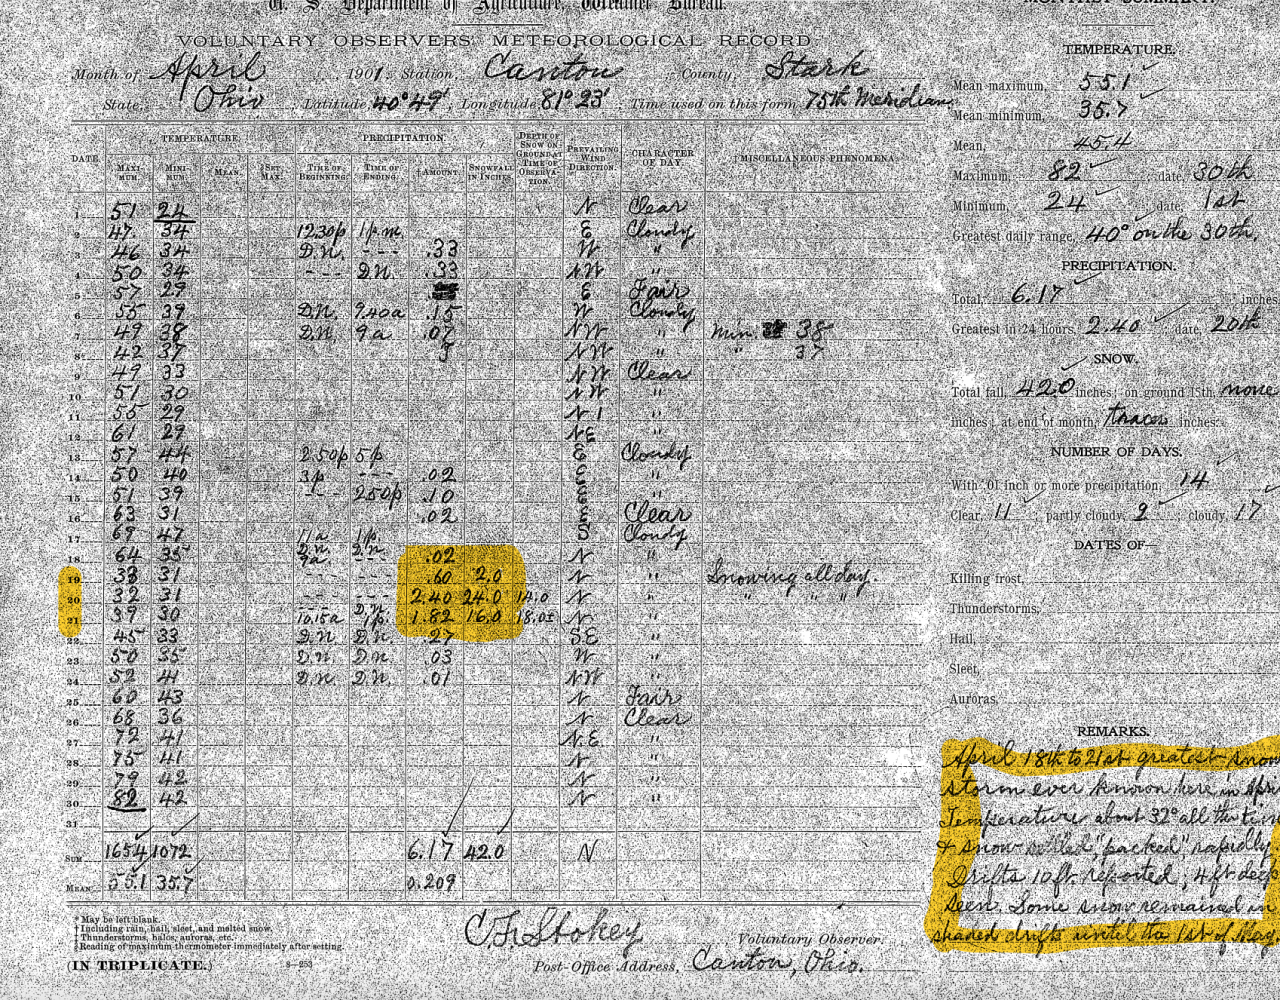 U. S. Department of Agriculture, Weather Bureau.
VOLUNTARY OBSERVERS' METEOROLOGICAL RECORD
Month of April, 1901 Station, Canton County, Stark
State, Ohio Latitude 40° 49', Longitude 81° 23'; Time used on this form 75th Meridian
DATE. TEMPERATURE. PRECIPITATION. DEPTH OF SNOW ON GROUND AT TIME OF OBSERVATION. PREVAILING WIND DIRECTION. CHARACTER OF DAY. ‡MISCELLANEOUS PHENOMENA.
MAXIMUM. MINIMUM. *MEAN. §SET MAX. TIME OF BEGINNING. TIME OF ENDING. †AMOUNT. SNOWFALL IN INCHES.
1 51 24 N Clear
2 47. 34 1230p 1p.m. E Cloudy
3 46 34 D.N. --- .33 W "
4 50 34 --- D.N. .33 NW "
5 57 29 E Fair
6 55 39 D.N. 9.40a .15 W Cloudy
7 49 38 D.N. 9a .07 NW " Min. 38
8 42 37 T NW " " 37
9 49 33 NW Clear
10 51 30 NW "
11 55 29 "
12 61 29 NE "
13 57 44 250p 5p E Cloudy
14 50 40 3p --- .02 E "
15 51 39 --- 250p .10 E "
16 63 31 .02 E Clear
17 69 47 11a 1p. S Cloudy
18 64 35 D.N. 9a D.N. --- .02 N "
19 33 31 --- --- .60 2.0 N " Snowing all day.
20 32 31 --- --- 2.40 24.0 14.0 N " " " "
21 39 30 --- 10.15a D.N. 1p. 1.82 16.0 18.0± N "
22 45 33 D.N D.N. .27 SE "
23 50 35 D.N. D.N. .03 W "
24 52 41 D.N D.N. .01 NW "
25 60 43 N Fair
26 68 36 N Clear
27 72 41 N.E "
28 75 41 N "
29 79 42 N "
30 82 42 N "
31
SUM 1654 1072 6.17 42.0 N
MEAN 55.1 35.7 0.209
* May be left blank.
† Including rain, hail, sleet, and melted snow.
‡ Thunderstorms, halos, auroras, etc.
§ Reading of maximum thermometer immediately after setting.
(IN TRIPLICATE.) 8—253
C F Stokey, Voluntary Observer.
Post-Office Address, Canton, Ohio.
MONTHLY SUMMARY.
TEMPERATURE.
Mean maximum, 55.1
Mean minimum, 35.7
Mean, 45.4
Maximum, 82; date, 30th
Minimum, 24; date, 1st
Greatest daily range, 40° on the 30th.
PRECIPITATION.
Total, 6.17 inches
Greatest in 24 hours, 2.40; date, 20th
SNOW.
Total fall, 42.0 inches; on ground 15th, none
inches; at end of month, traces inches.
NUMBER OF DAYS.
With .01 inch or more precipitation, 14
Clear, 11; partly cloudy, 2; cloudy, 17
DATES OF—
Killing frost,
Thunderstorms,
Hail,
Sleet,
Auroras,
REMARKS.
April 18th to 21st greatest snow
storm ever known here in April
Temperature about 32° all the time
& snow "packed" rapidly.
Drifts 10 ft. reported; 4 ft deep
seen. Some snow remained in
shaded drifts until the 1st of May.